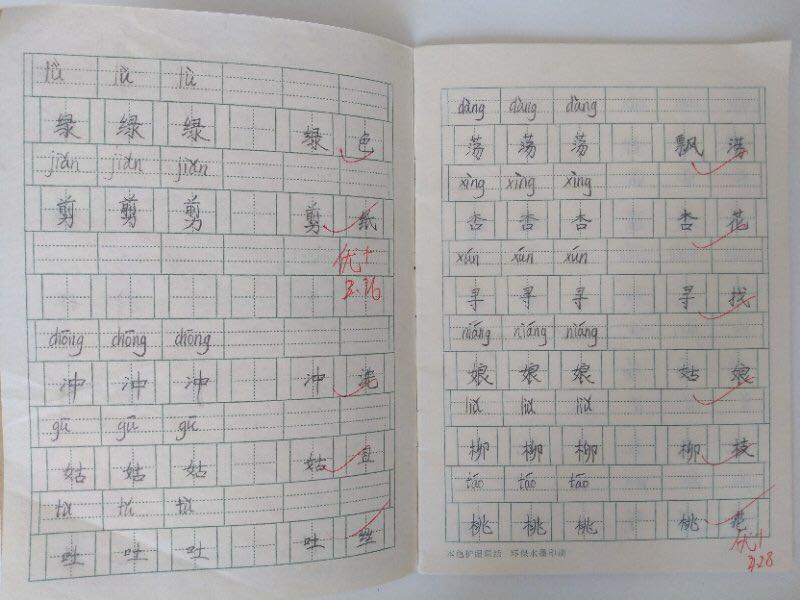 lǜ lǜ lǜ
绿 绿 绿 绿 色
jiǎn jiǎn jiǎn
剪 剪 剪 剪 纸
优+
3.26
chōng chōng chōng
冲 冲 冲 冲 洗
gū gū gū
姑 姑 姑 姑 且
tǔ tǔ tǔ
吐 吐 吐 吐 丝
dàng dàng dàng
荡 荡 荡 飘 荡
xìng xìng xìng
杏 杏 杏 杏 花
xún xún xún
寻 寻 寻 寻 找
niáng niáng niáng
娘 娘 娘 姑 娘
liǔ liǔ liǔ
柳 柳 柳 柳 枝
táo táo táo
桃 桃 桃 桃 花
本色护眼纸 环保水墨印刷
3.28